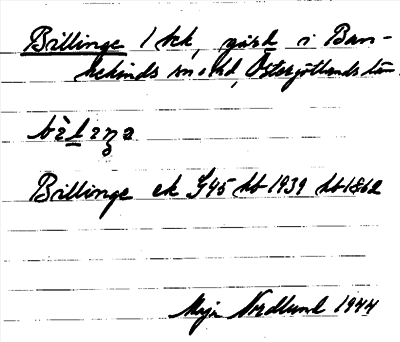 Billinge 1 hk, gård i Ban-
kekinds sn o hd, Östergötlands län.
Billinge ek G45 Jb 1939 Jb 1862
Maja Nordlund 1944